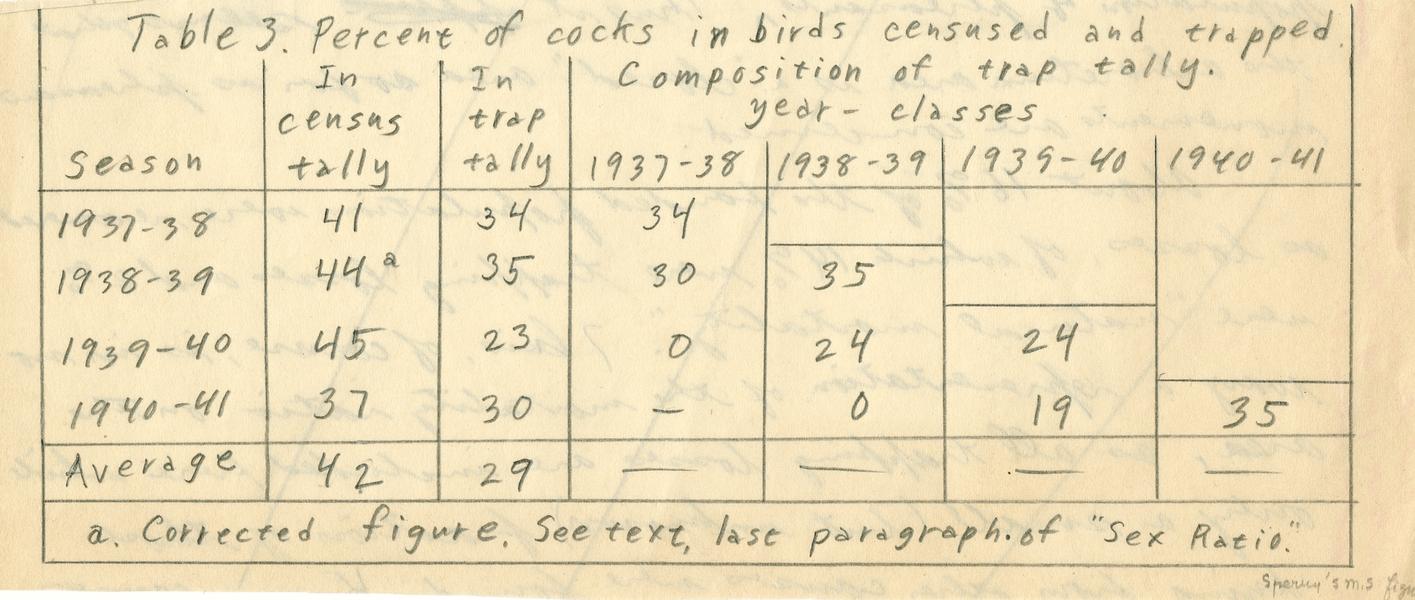 Table 3. Percent of cocks in birds censused and trapped.
In census tally
In trap tally
Composition of trap tally.
year - classes
Season 1937-38 1938-39 1939-40 1940-41
1937-38 41 34 34
1938-39 44 a 35 30 35
1939-40 45 23 0 24 24
1940-41 37 30 — 0 19 35
Average 42 29 — — — —
a. Corrected figure. See text, last paragraph of "Sex Ratio."
m.s